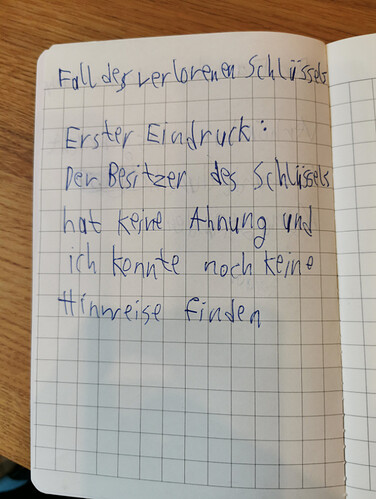 Fall des verlorenen Schlüssels
Erster Eindruck:
Der Besitzer des Schlüssels
hat keine Ahnung und
ich konnte noch keine
Hinweise finden